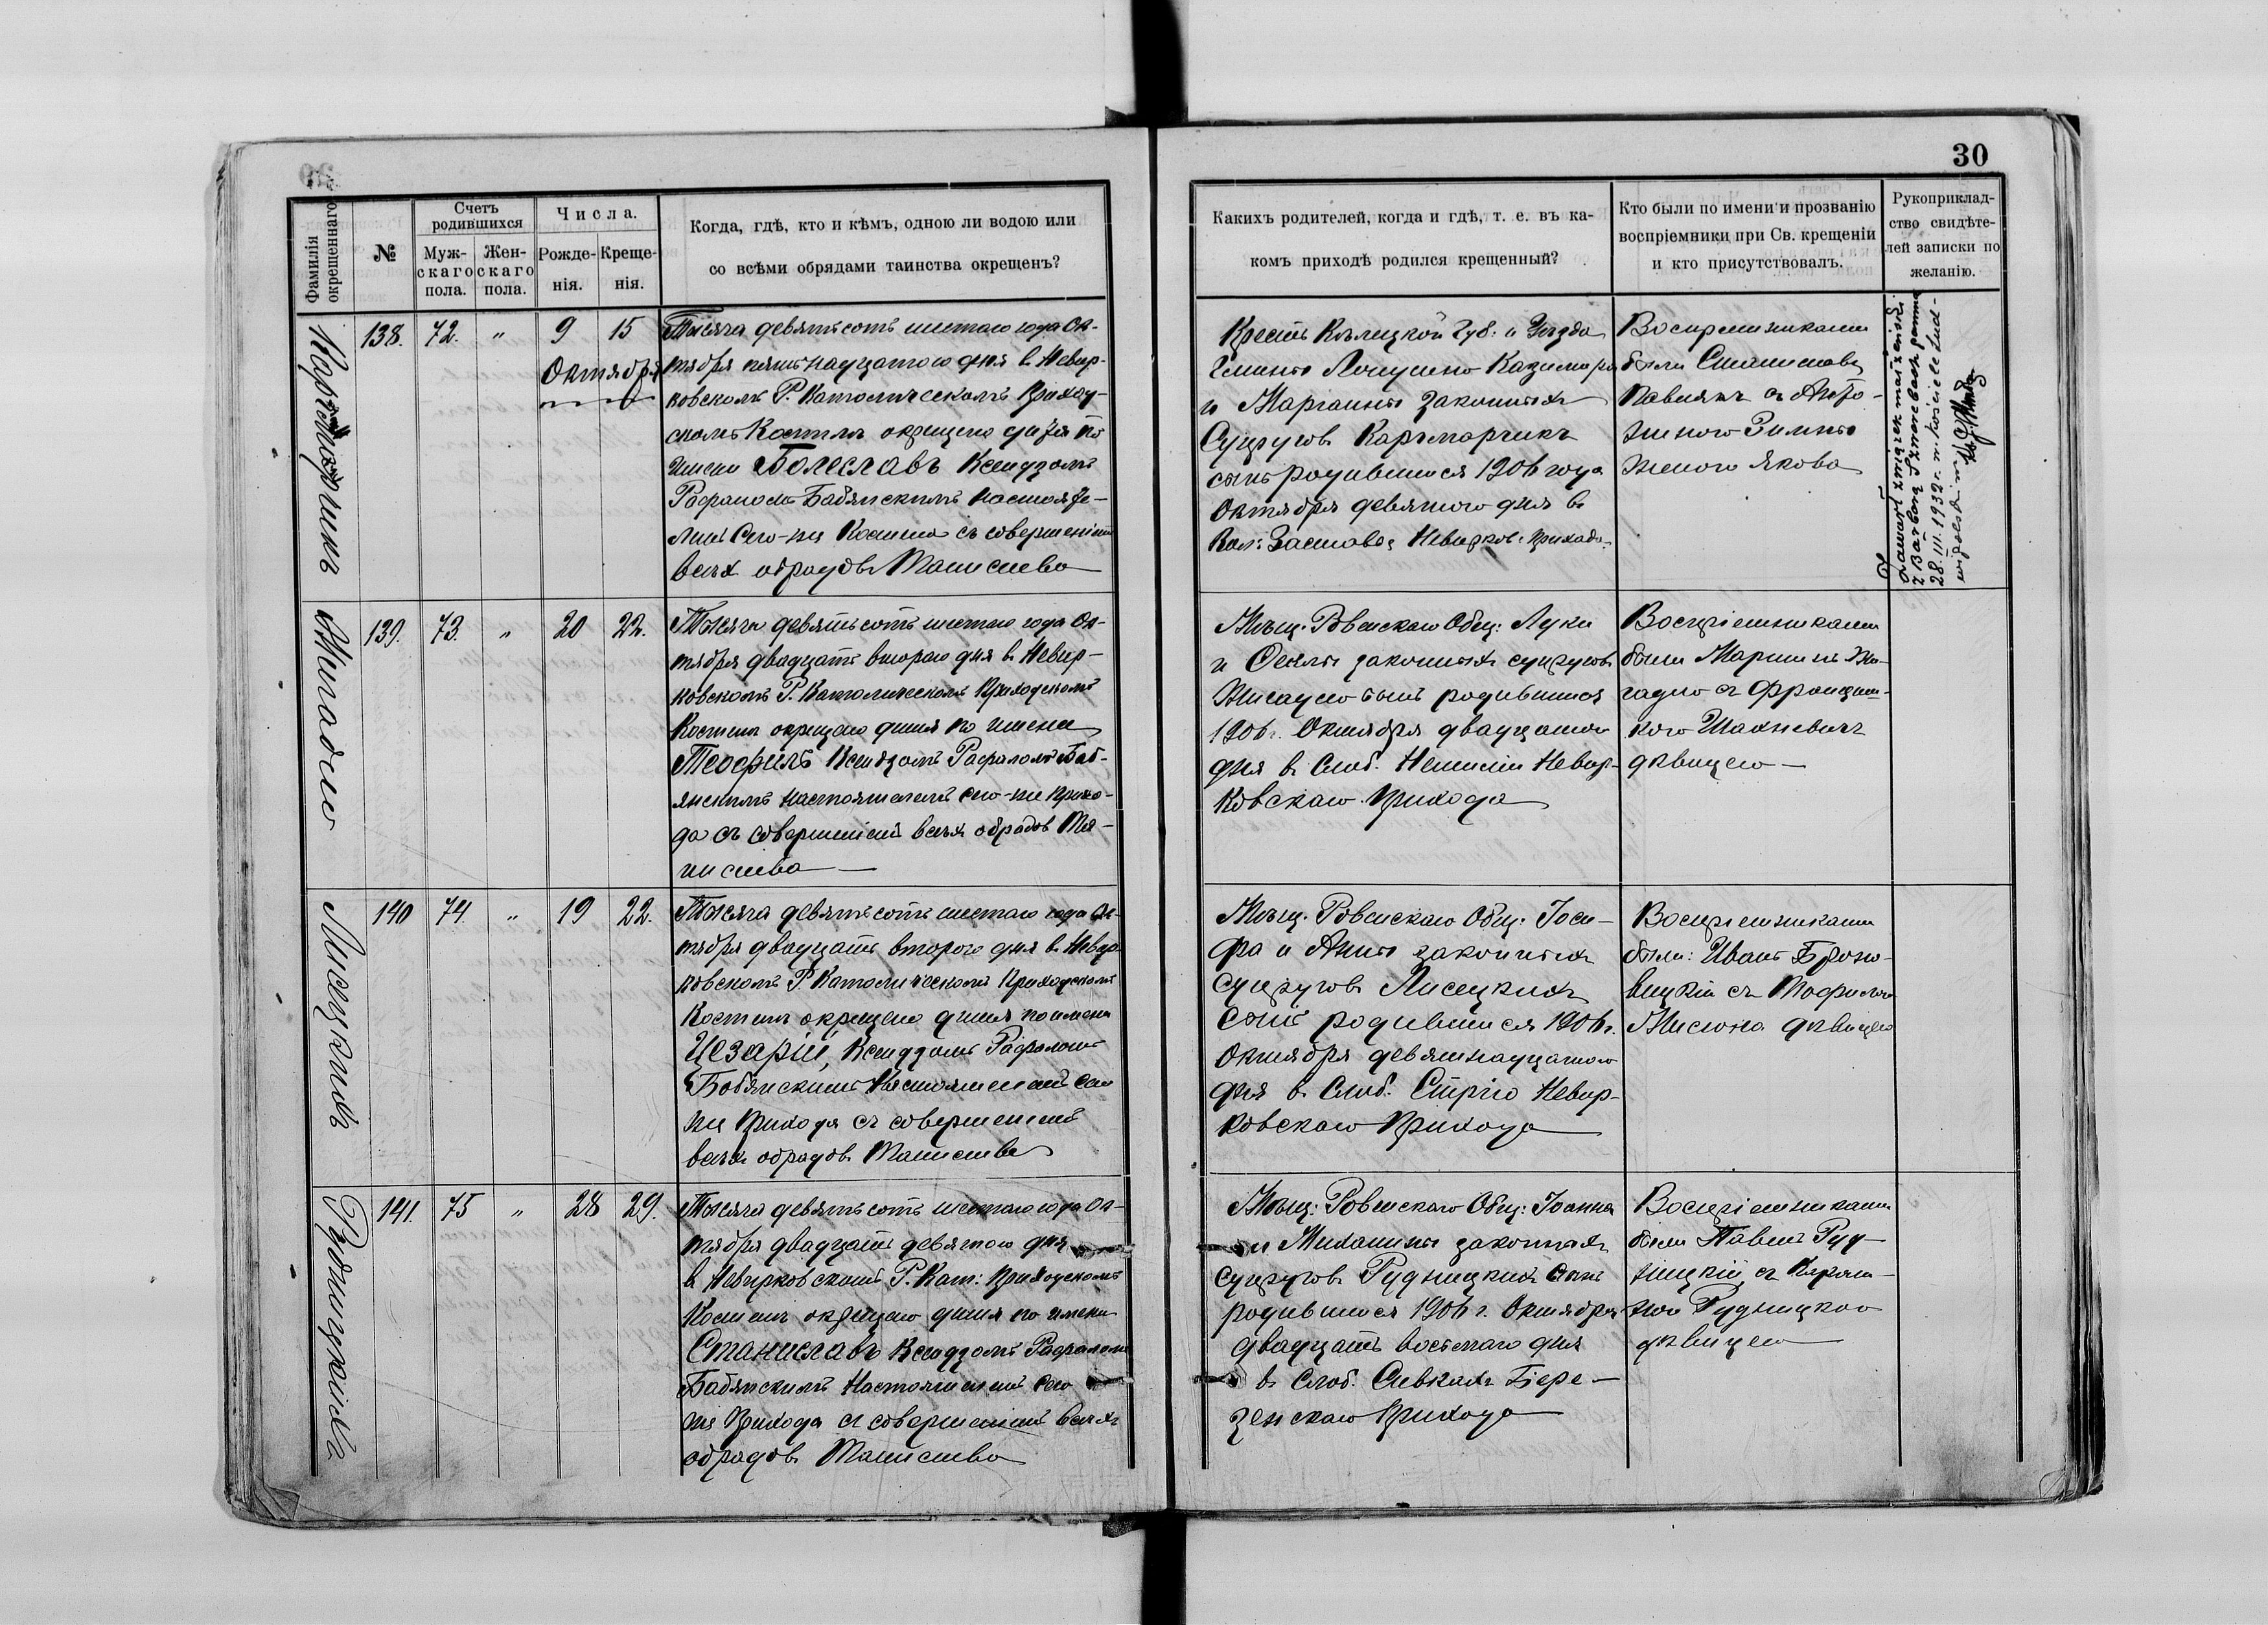 30
Фамилія
окрещеннаго
№
Счетъ
родившихся
Муж-
скаго
пола.
Жен-
скаго
пола.
Числа.
Рожде-
нія.
Креще-
нія.
Когда, гдѣ, кто и кѣмъ, одною ли водою или
со всѣми обрядами таинства окрещенъ?
Какихъ родителей, когда и гдѣ, т. е. въ ка-
комъ приходѣ родился крещенный?
Кто были по имени и прозванію
воспріемники при Св. крещеніи
и кто присутствовалъ.
Рукоприклад-
ство свидѣте-
лей записки по
желанію.
138. 72. " 9 15
Октября
Тысяча девятьсотъ шестаго года Ок-
тября пятьнадцатаго дня в Невир-
ковскомъ Р. Католическомъ Приход-
скомъ Костелѣ окрещено дитя по
имени Болеславъ Ксендзомъ
Рафаломъ Бабянскимъ Настояте-
лемъ сего-же Костела съ совершеніемъ
всѣхъ обрядовъ Таинства
Крестъ Кѣлецкой Губ: и Уѣзда
Гмины Лопушно Казимира
и Маріанны законныхъ
Супруговъ Карчмарчикъ
сынъ родившійся 1906 года
Октября девятого дня в
Кол: Заставе, Невирков: прихода
Воспріемниками
были Станиславъ
Павлякъ съ Анто-
ниною Зимны
женою Якова
Zawarł związek małżeński
z Barbarą
28.III.1932 r. w kościele Lud-
wipolskim
Жигадло
139. 73. " 20 22.
Тысяча девятьсотъ шестаго года Ок-
тября двадцать втораго дня в Невир-
ковскомъ Р. Католическомъ Приходскомъ
Костелѣ окрещено дитя по имени
Теофиль Ксендзомъ Рафаломъ Баб-
янскимъ Настоятелемъ сего-же прихо-
да съ совершеніемъ всѣхъ обрядовъ Та-
инства
Мѣщ. Ровенскаго Общ: Луки
и законныхъ супруговъ
Жигадло сынъ родившійся
1906 г. Октября двадцатого
дня в Слоб. Невир-
ковскаго прихода
Воспріемниками
были Мартинъ Жи-
гадло съ Францишкою
Шахневичъ
дѣвицею
Лисецкихъ
140 74. " 19 22.
Тысяча девятьсотъ шестаго года Ок-
тября двадцать второго дня в Невир-
ковскомъ Р. Католическомъ Приходскомъ
Костелѣ окрещено дитя по имени
Цезарій, Ксендзомъ Рафаломъ
Бабянскимъ Настоятелемъ сего
же Прихода съ совершеніемъ
всѣхъ обрядовъ Таинства
Мѣщ. Ровенскаго Общ: Іоси-
фа и Анны законныхъ
Супруговъ Лисецкихъ
Сынъ родившійся 1906 г.
Октября девятнадцатого
дня в Слоб. Стрiю Невир-
ковскаго Прихода
Воспріемниками
были: Иванъ Броно-
вицкій съ Теофилею
дѣвицею
Рудницкихъ
141. 75 " 28 29.
Тысяча девятьсотъ шестаго года Ок-
тября двадцать девятого дня
в Невирковскомъ Р. Кат: Приходскомъ
Костелѣ окрещено дитя по имени
Станиславъ Ксендзомъ Рафаломъ
Бабянскимъ Настоятелемъ сего
же Прихода съ совершеніемъ всѣхъ
обрядовъ Таинства
Мѣщ: Ровенскаго Общ: Іоанна
и Михалины законныхъ
Супруговъ Рудницкихъ сынъ
родившійся 1906 г. Октября
двадцать восьмаго дня
в Слоб. Сивкахъ Бере-
зенскаго Прихода
Воспріемниками
были Павелъ Руд-
ницкій съ Кароли-
ною Рудницкою
дѣвицею